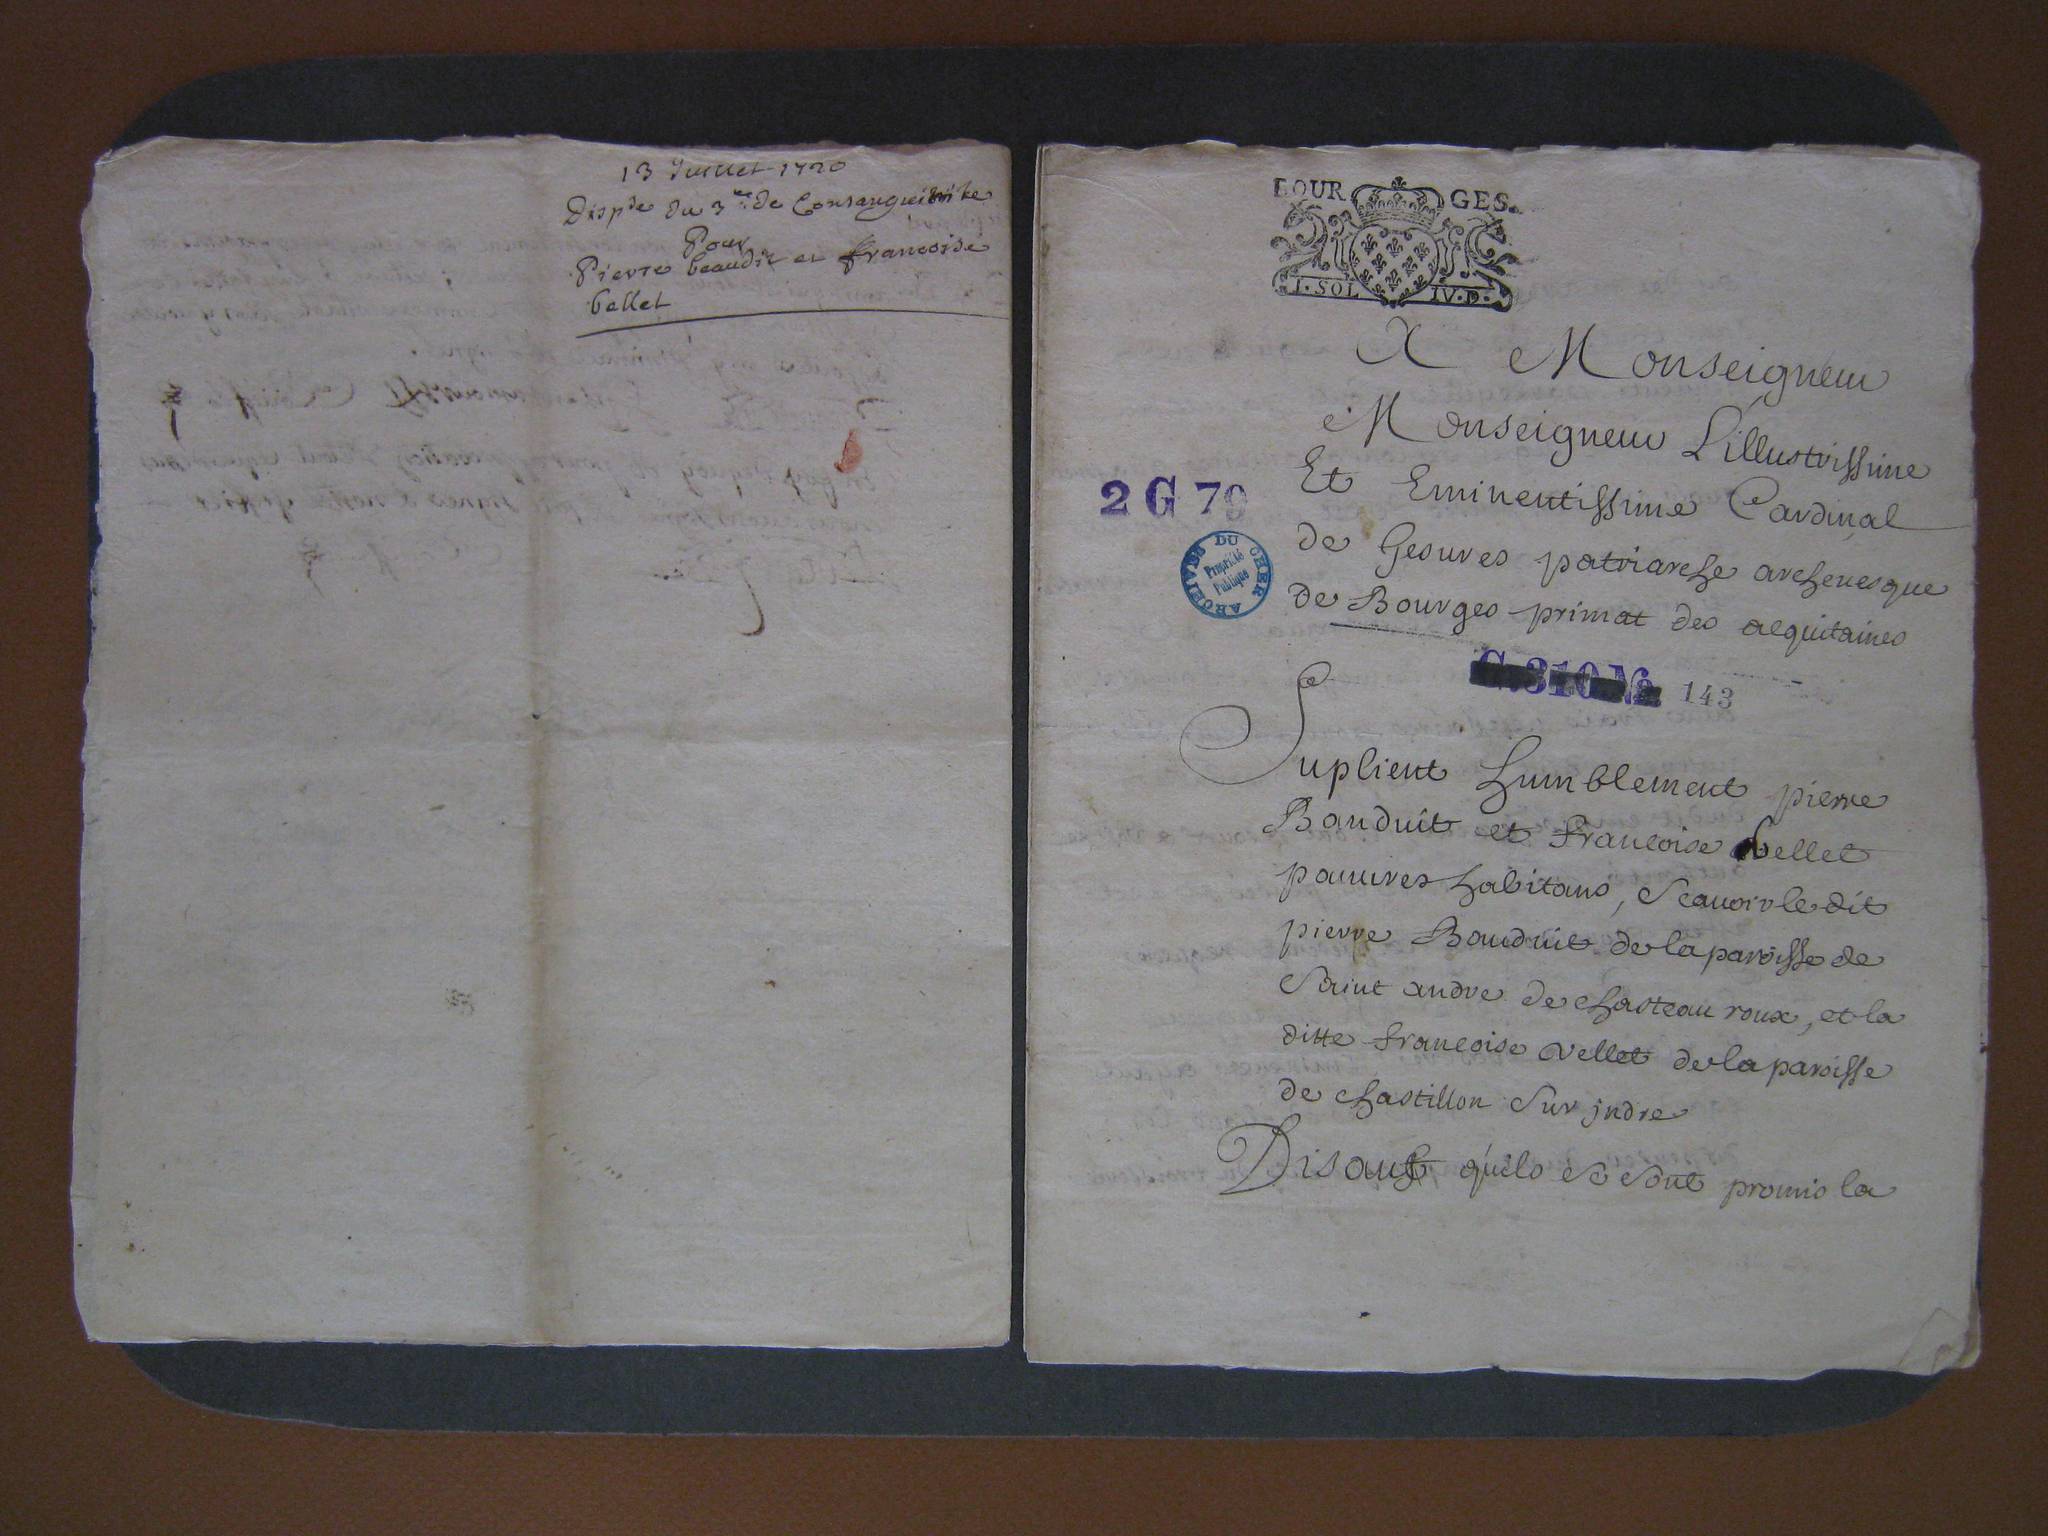 13 Juillet 1720
Dispse du 3e de Consanguinite
Pour
Pierre beaudit et francoise
bellet
BOURGES.
I·SOL IV·D·
A Monseigneur
Monseigneur L'illustrissime
Et Eminentissime Cardinal
de Gesures patriarche archevesque
de Bourges primat des aequitaines
2 G 79
ARCHIVES DU CHER
Propriété
Publique
C. 310 No 143
Suplient humblement pierre
Bauduit et francoise vellet
pauvres habitans, Scavoir le dit
pierre Bauduit de la paroisse de
Saint andre de chasteau roux, et la
ditte francoise vellet de la paroisse
de chastillon sur jndre
Disant quils se sont promis la